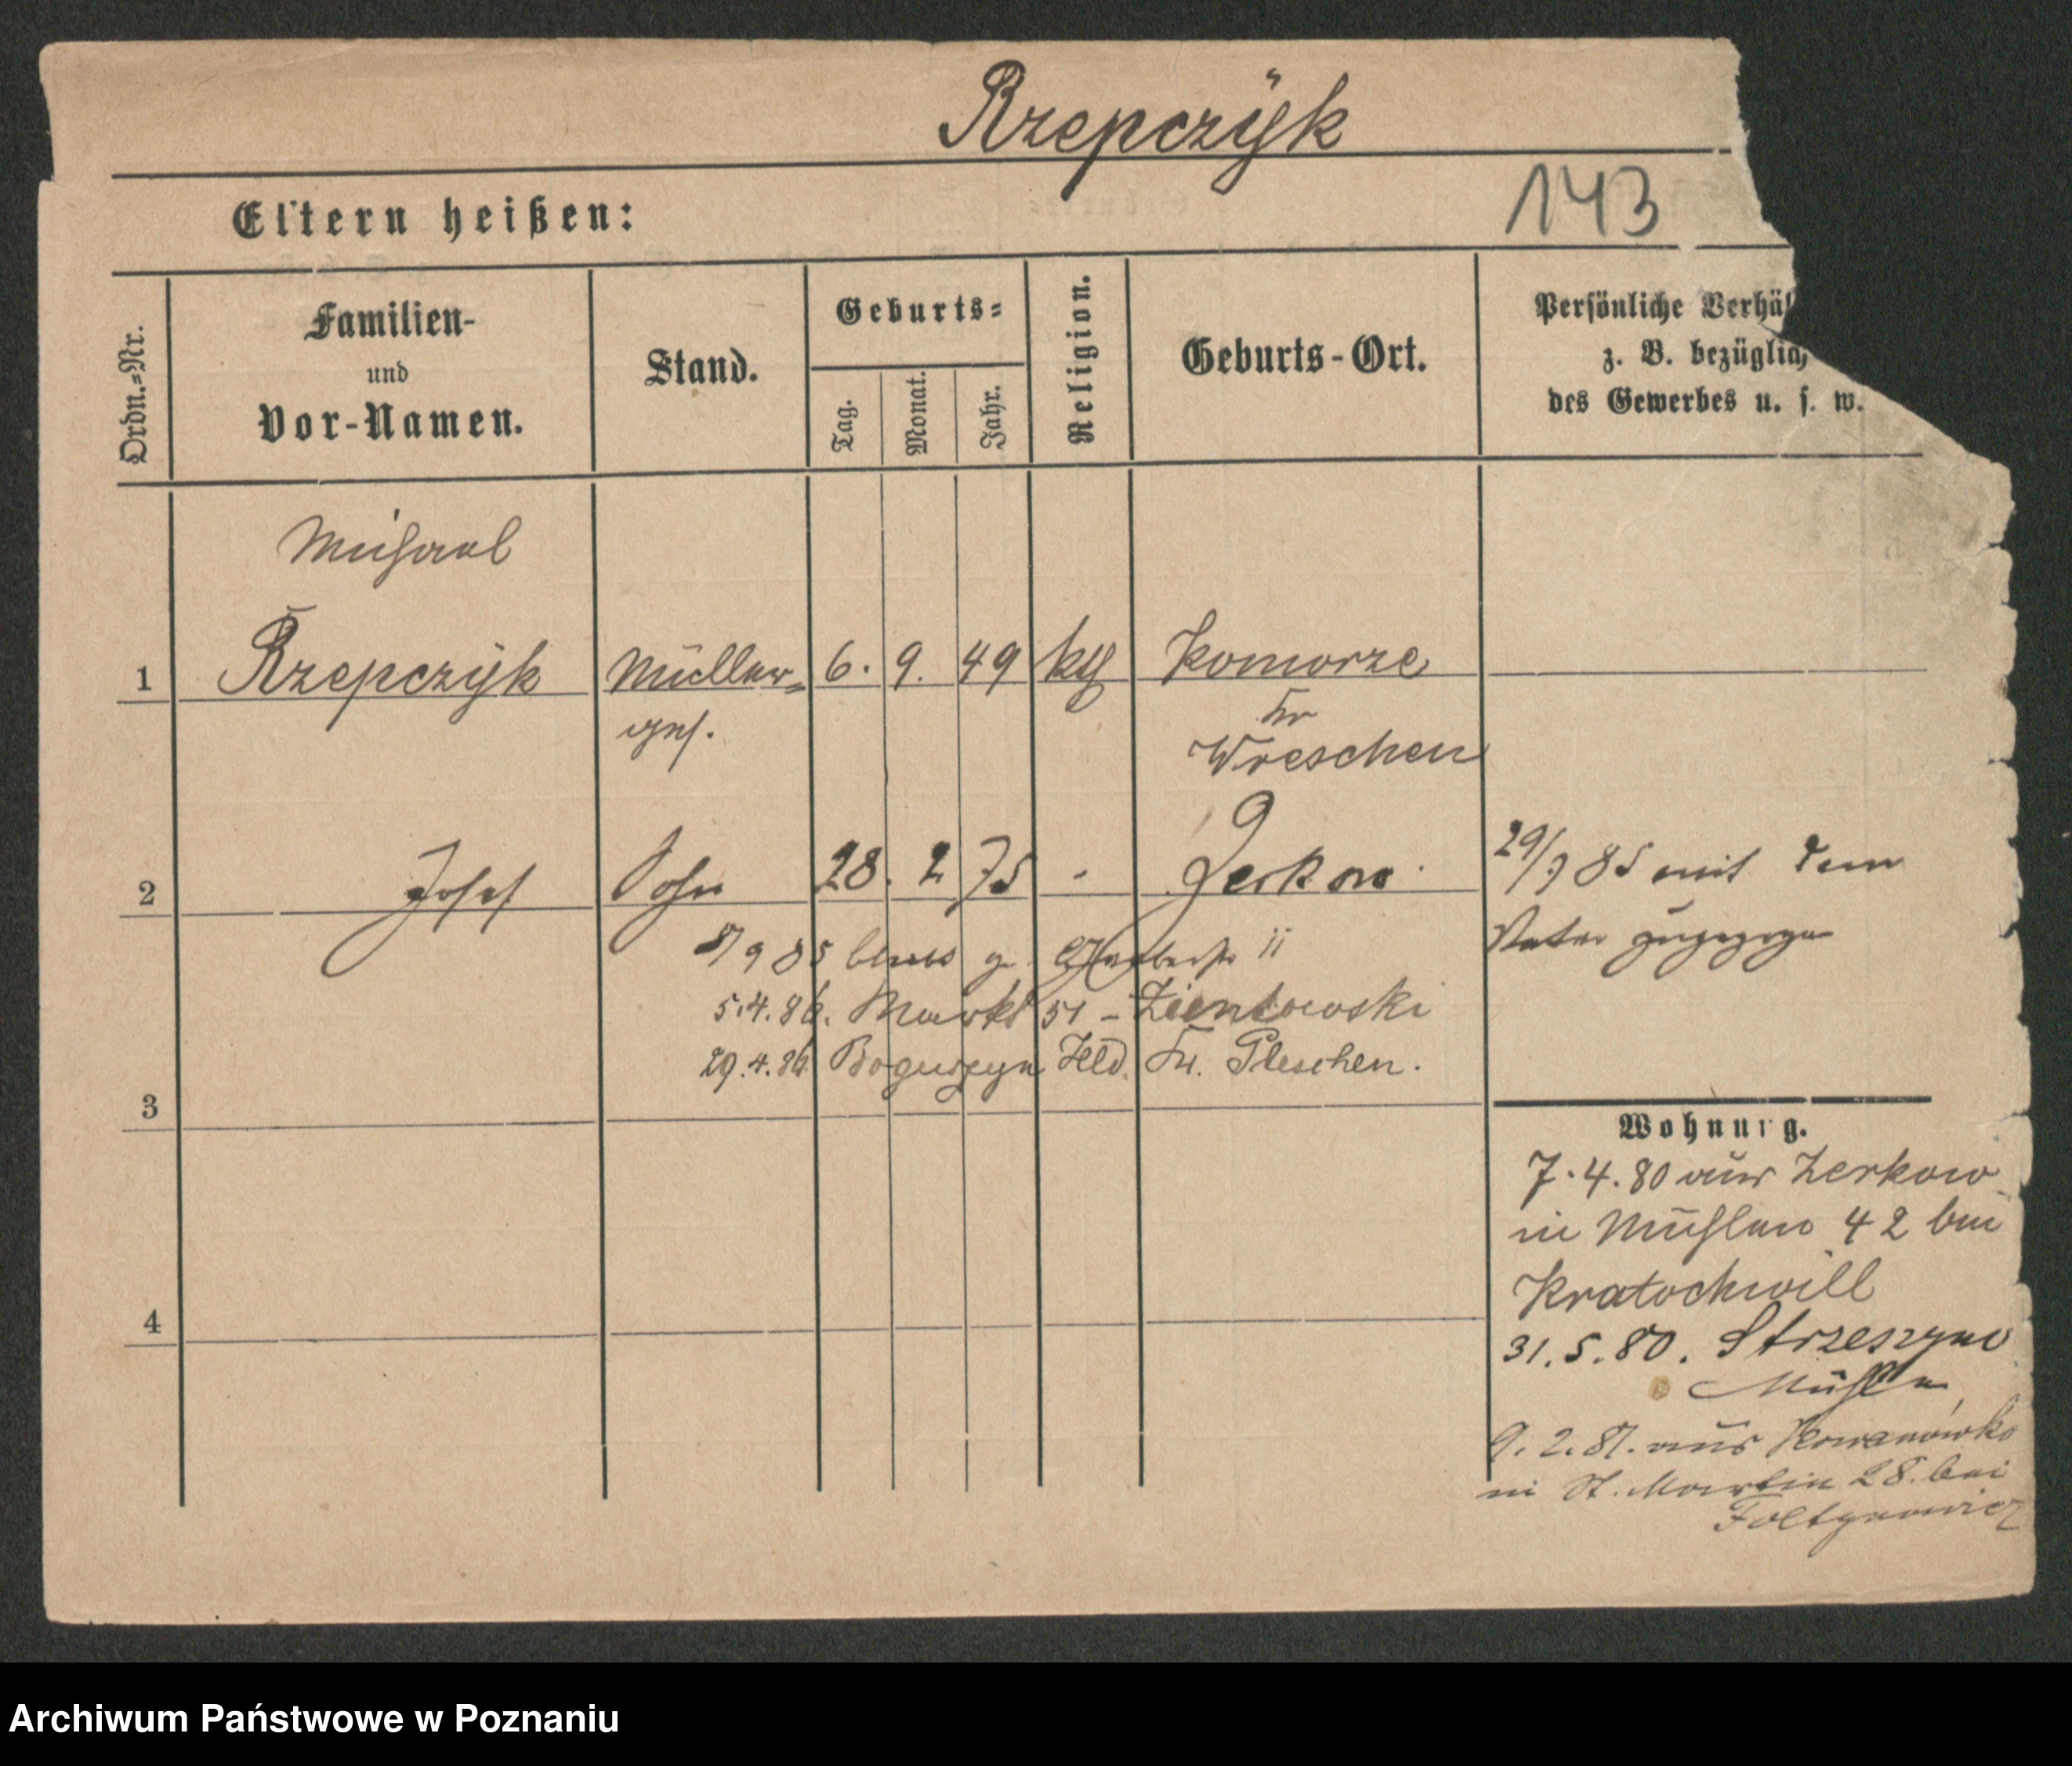 Rzepczÿk
143
Eltern heißen:
Ordn.=Nr.
Familien-
und
Vor-Namen.
Stand.
Geburts=
Tag.
Monat.
Jahr.
Religion.
Geburts-Ort.
Persönliche Verhäl
z. B. bezüglich
des Gewerbes u. s. w.
Michael
1 Rzepczÿk Müller= 6. 9. 49 kth Komorze
ges. Kr
Wreschen
2 Josef Sohn 28. 2 75 - Zerkow
29/9 85 mit dem
Vater zugezogen
9 85
5.4.86. Markt 51 - Zientowski
29.4.86 Boguszyn Hld. Kr. Pleschen.
3
4
Wohnung.
7.4.80 aus Zerkow
in Mühlen 42 bei
Kratochwill
31.5.80. Strzeszyno
Mühle
9.2.81. aus Kowanówko
in St. Martin 28. bei
Foltynowicz
Archiwum Państwowe w Poznaniu